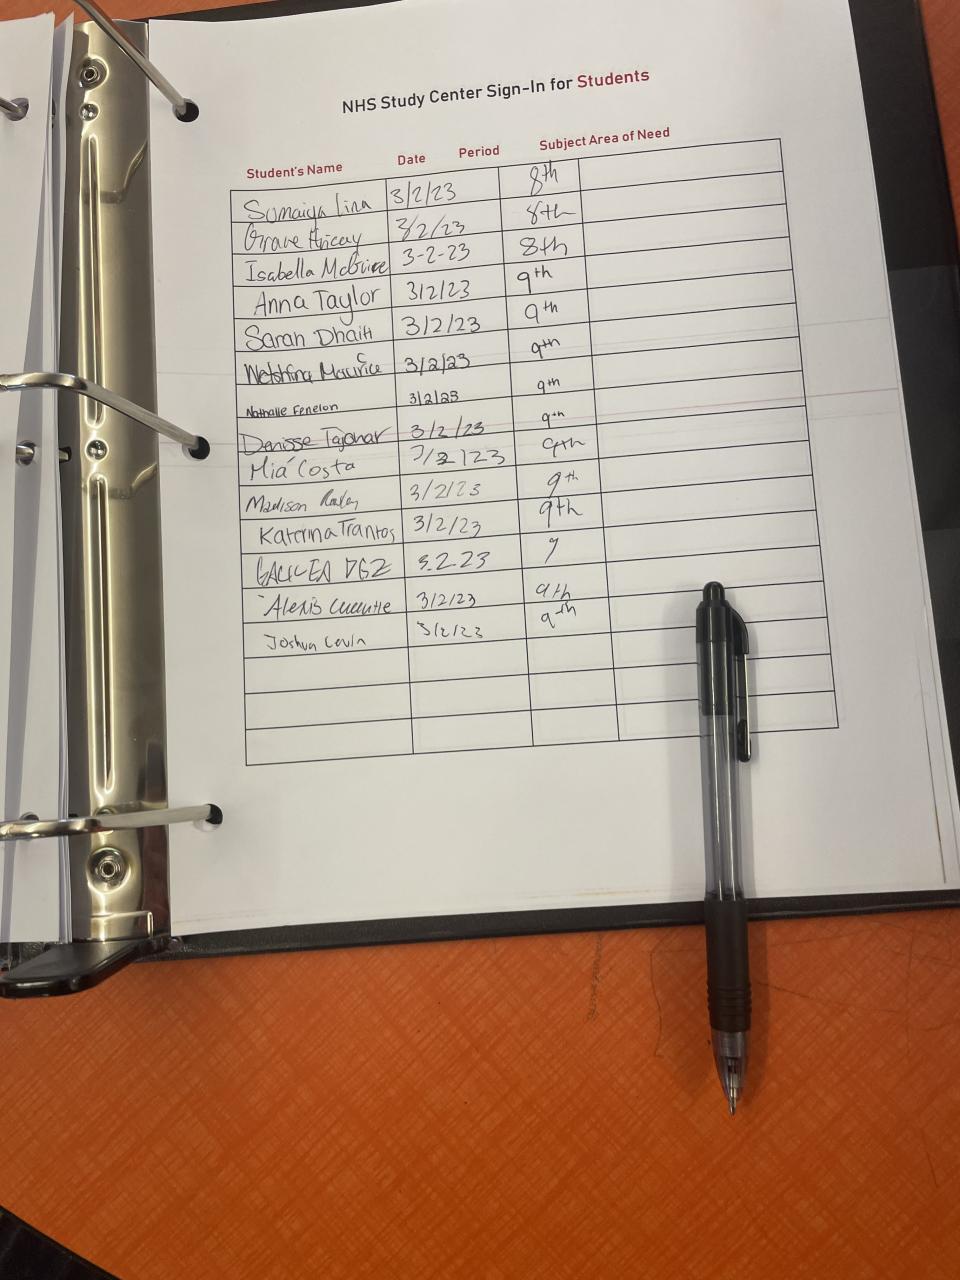 NHS Study Center Sign-In for Students
Student's Name Date Period Subject Area of Need
Sumaiya Lira 3/2/23 8th
Grave 3/2/23 8th
Isabella McGuire 3-2-23 8th
Anna Taylor 3/2/23 9th
Sarah Dhaiti 3/2/23 9th
Maurice 3/2/23 9th
Nathalie Fenelon 3/2/23 9th
Denisse 3/2/23 9th
Mia Costa 3/2/23 9th
Madison 3/2/23 9th
Katerina Trantos 3/2/23 9th
3.2.23 9
Alexis 3/2/23 9th
Joshua Levin 3/2/23 9th